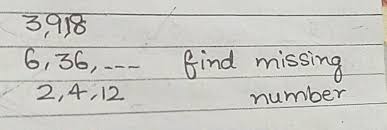 3,9,18
6,36,--- find missing
2,4,12 number